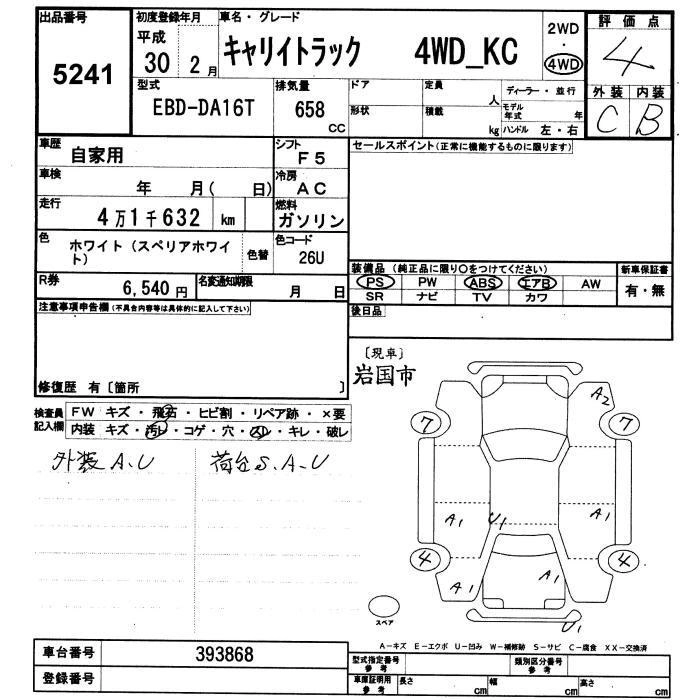 出品番号
5241
初度登録年月
平成
30 2月
車名・グレード
キャリイトラック 4WD_KC
2WD
・
4WD
評価点
4
外装 内装
C B
型式
EBD-DA16T
排気量
658
CC
ドア
定員
人
ディーラー・並行
形状
積載
kg
モデル年式 年
ハンドル 左・右
車歴
自家用
シフト
F5
車検
年 月( 日)
冷房
AC
走行
4万1千632 km
燃料
ガソリン
色
ホワイト(スペリアホワイト)
色替
色コード
26U
R券
6,540円
名変通知期限
月 日
セールスポイント(正常に機能するものに限ります)
装備品(純正品に限り〇をつけてください)
新車保証書
PS PW ABS エアB AW
有・無
SR ナビ TV カワ
後日品
注意事項申告欄(不具合内容等は具体的に記入して下さい)
修復歴 有〔箇所 〕
〔現車〕
岩国市
検査員記入欄
FW キズ・飛石・ヒビ割・リペア跡・×要
内装 キズ・汚レ・コゲ・穴・スレ・キレ・破レ
外装A.U 荷台S.A.U
A2
7 7
A1 U1 A1
4 4
A1 A1
U1
スペア
A-キズ E-エクボ U-凹み W-補修跡 S-サビ C-腐食 XX-交換済
車台番号
393868
登録番号
型式指定番号
参考
類別区分番号
参考
車庫証明用
参考
長さ cm 幅 cm 高さ cm